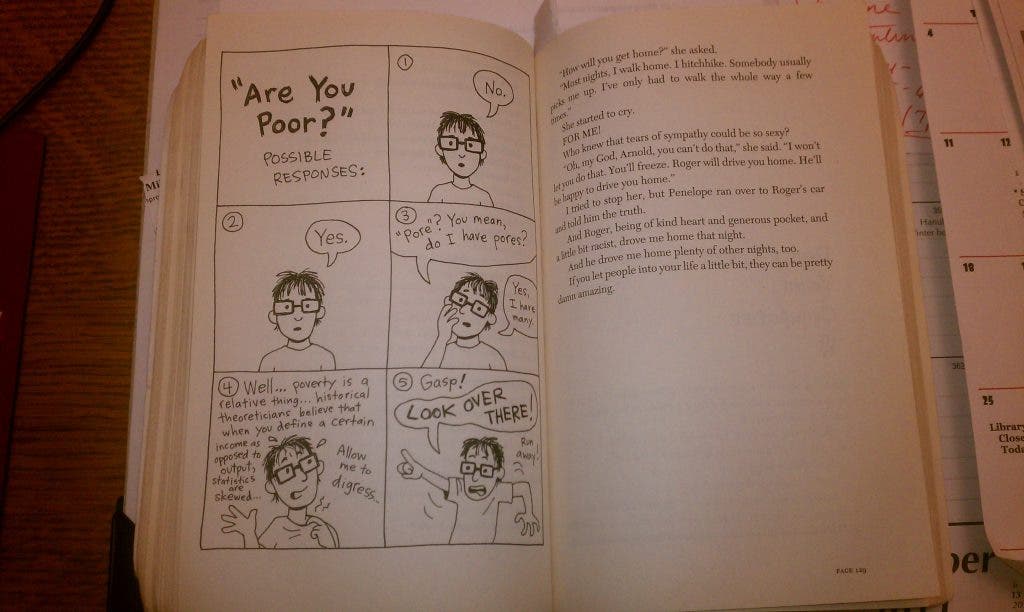 "Are You
Poor?"
POSSIBLE
RESPONSES:
1
No.
2
Yes.
3
"Pore"? You mean,
do I have pores?
Yes,
I have
many.
4 Well... poverty is a
relative thing... historical
theoreticians believe that
when you define a certain
income as
opposed to
output,
statistics
are
skewed...
Allow
me to
digress...
5 Gasp!
LOOK OVER
THERE!
Run
away
"How will you get home?" she asked.
"Most nights, I walk home. I hitchhike. Somebody usually
picks me up. I've only had to walk the whole way a few
times."
She started to cry.
FOR ME!
Who knew that tears of sympathy could be so sexy?
"Oh, my God, Arnold, you can't do that," she said. "I won't
let you do that. You'll freeze. Roger will drive you home. He'll
be happy to drive you home."
I tried to stop her, but Penelope ran over to Roger's car
and told him the truth.
And Roger, being of kind heart and generous pocket, and
a little bit racist, drove me home that night.
And he drove me home plenty of other nights, too.
If you let people into your life a little bit, they can be pretty
damn amazing.
PAGE 129
4
11
12
18
25
Library
Close
Toda